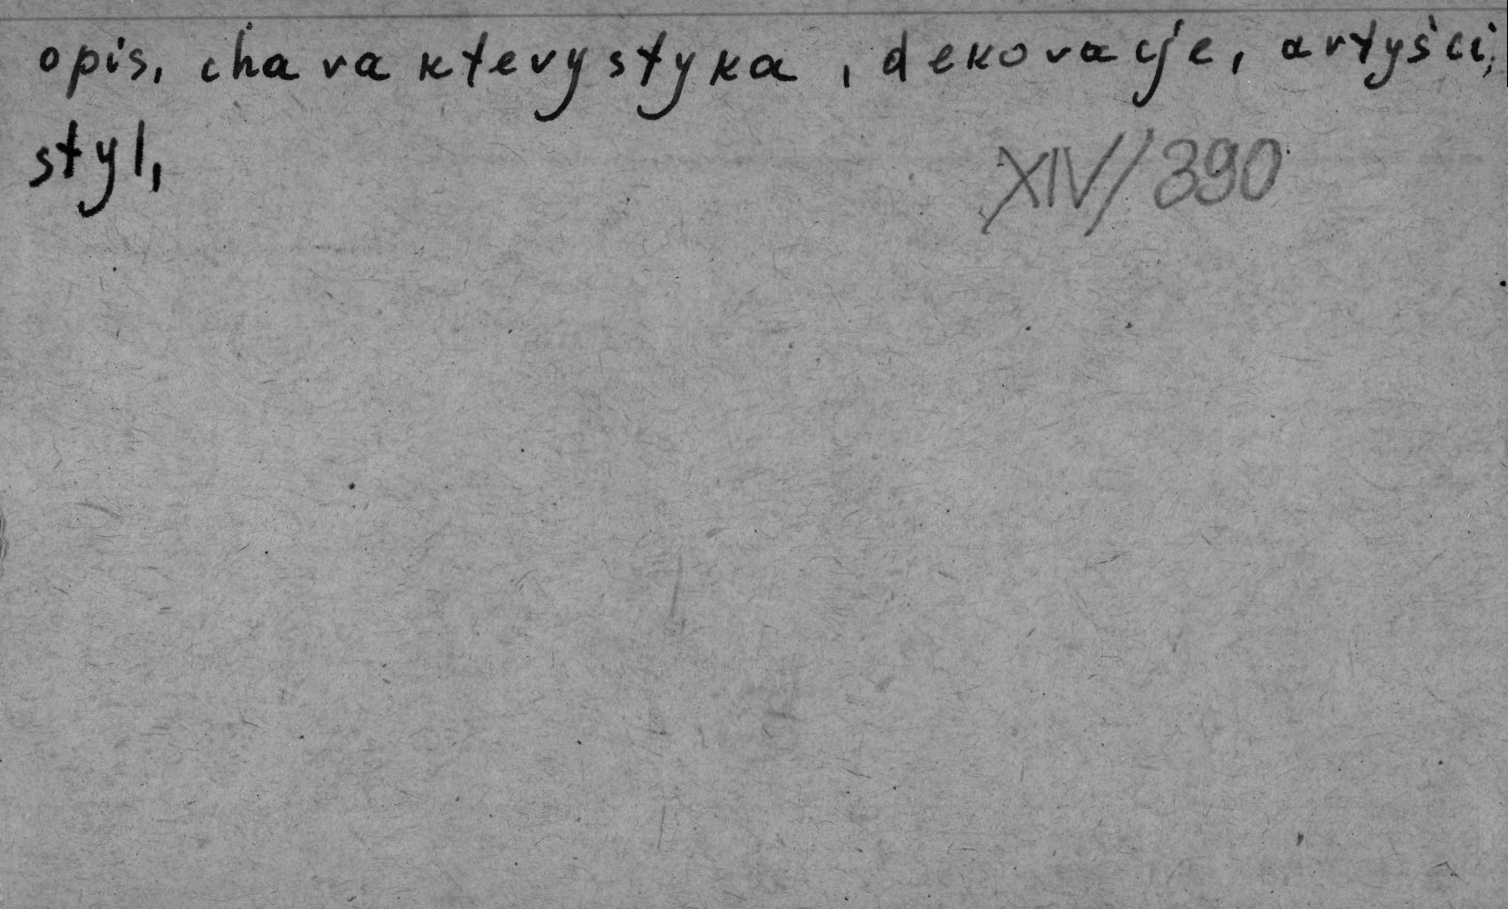 opis, charakterystyka, dekoracje, artyści,
styl,
XIV/390